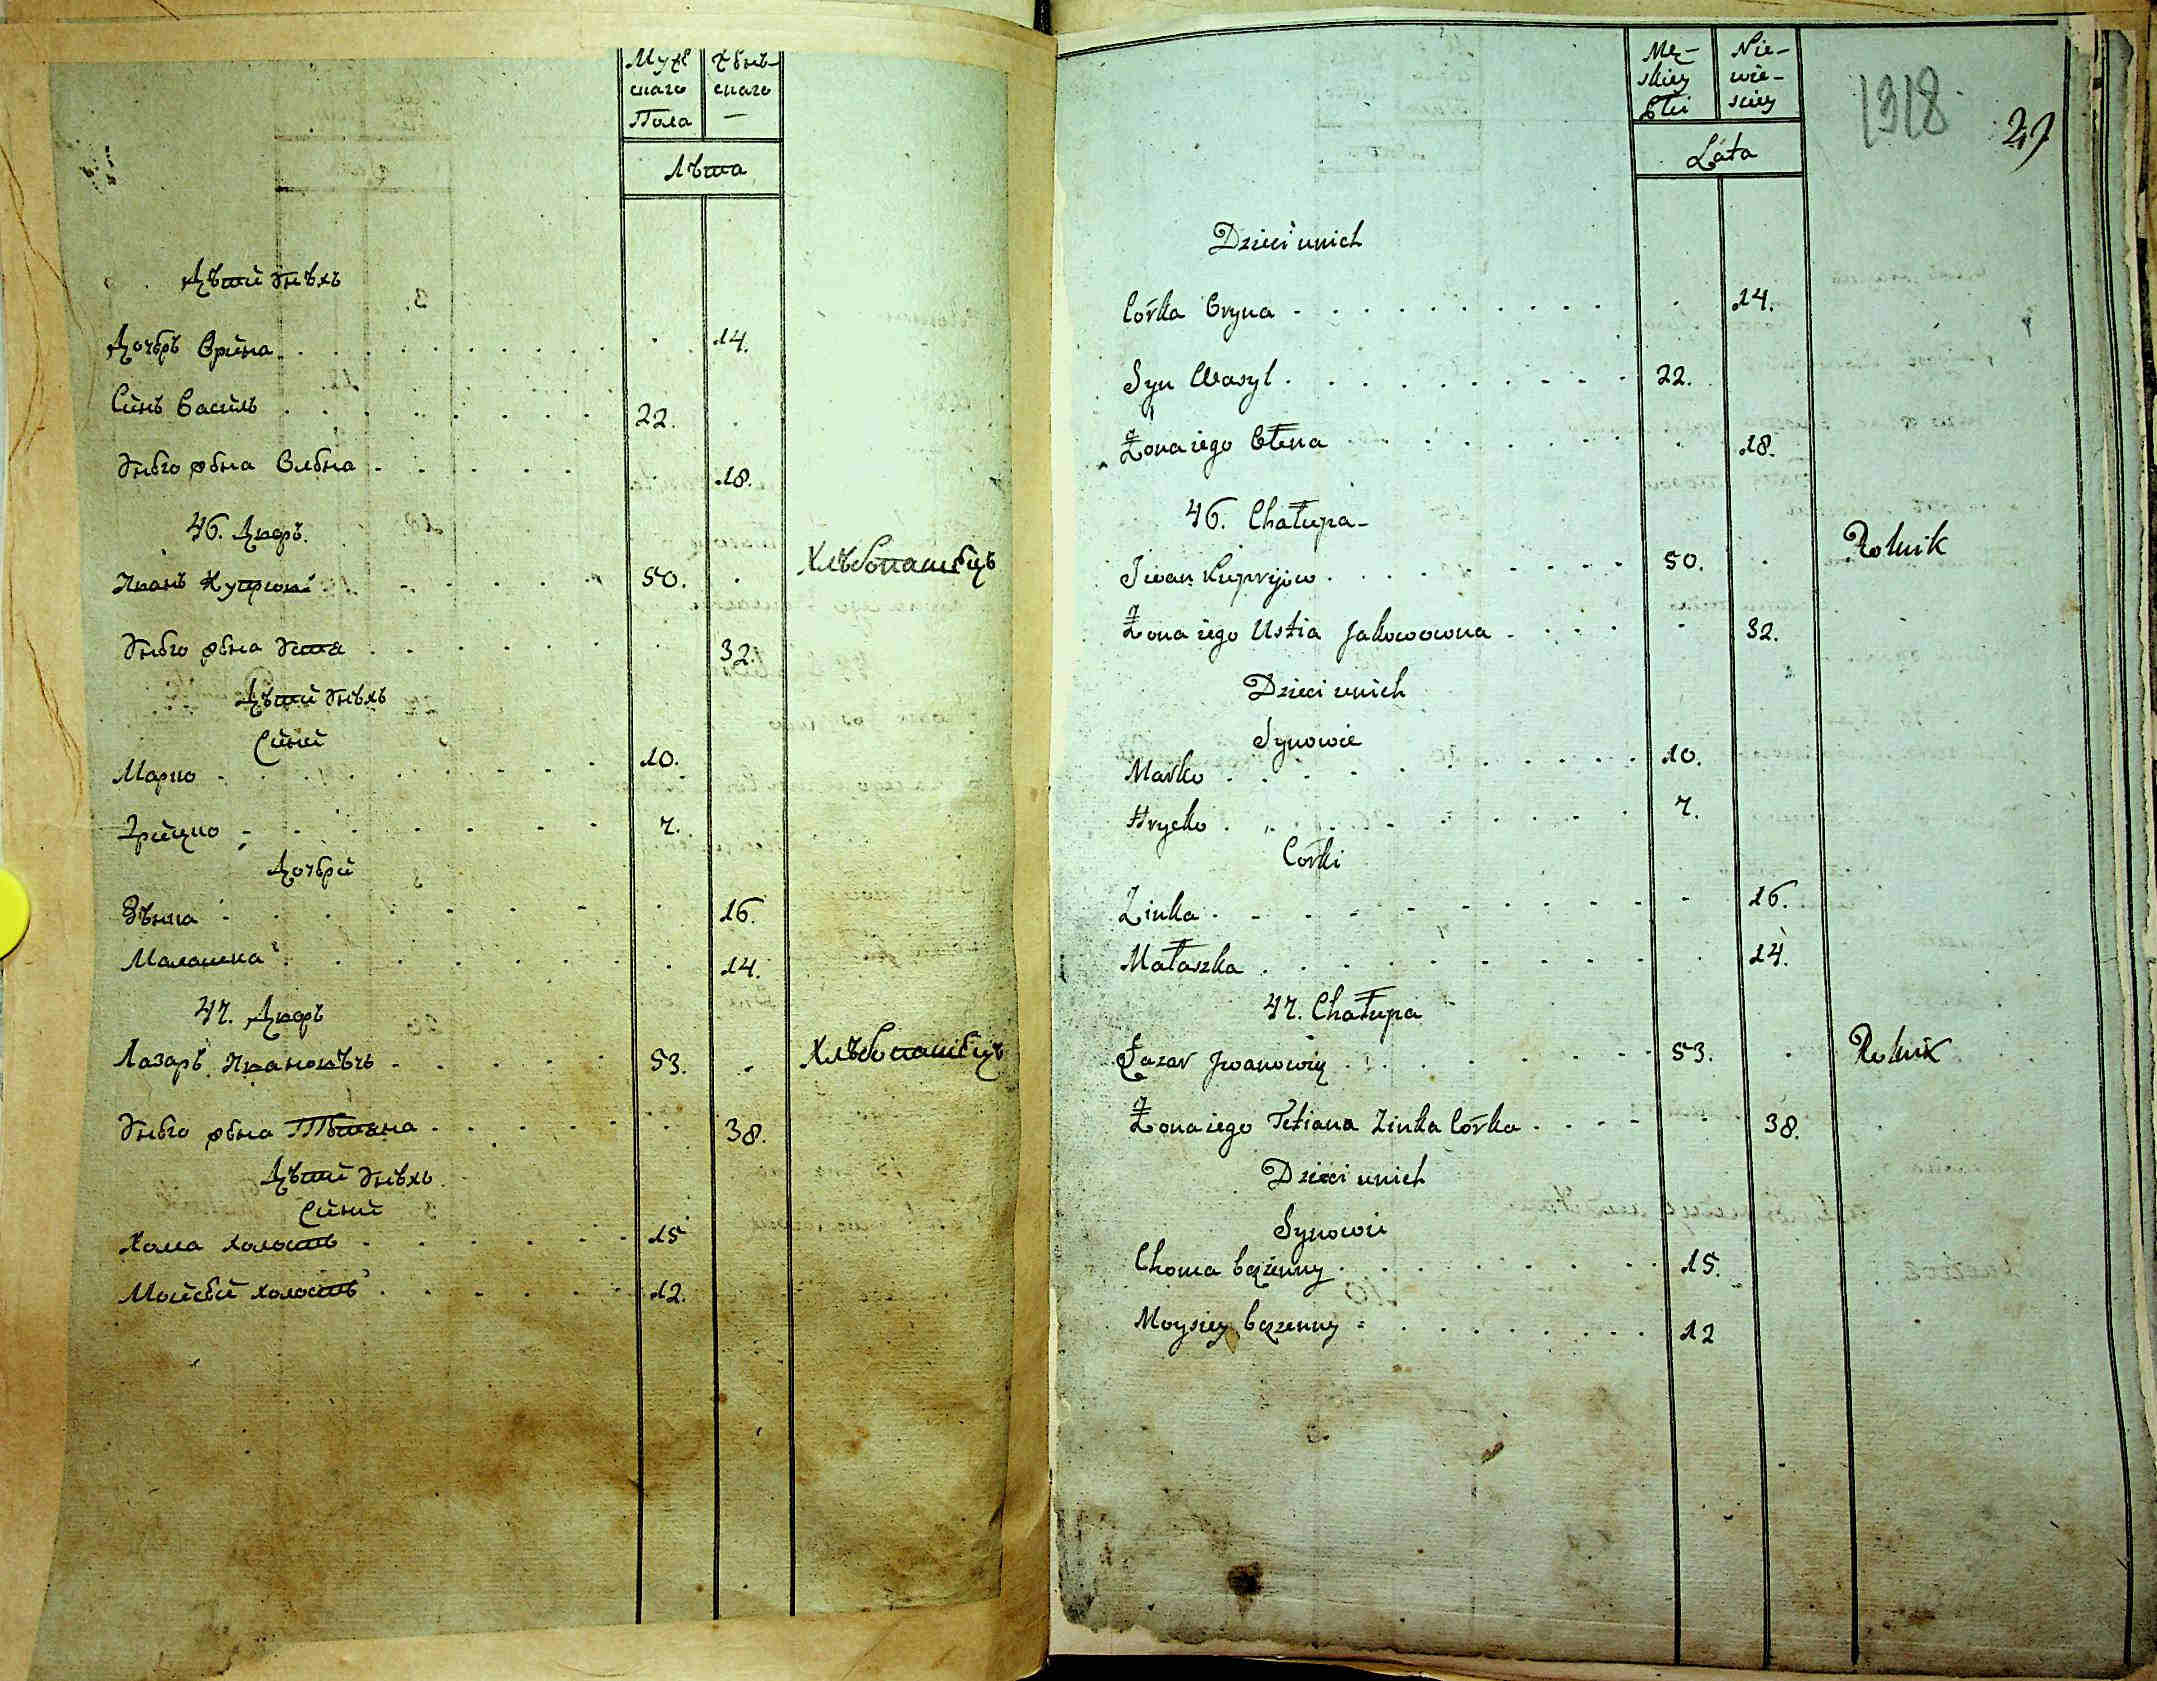 Муже
скаго
Пола
Женъ-
скаго
—
Лѣта
Дѣти Унѣхъ
Дочерь Орина . . . . . . . . . . 14.
Синъ Василь . . . . . . . . 22. .
Унего жена Олена . . . . . . 18.
46. Дворъ.
Иванъ Куприювъ . . . . . 50. . Хлѣбопашецъ
Унего жена Устя . . . . . . . 32.
Дѣти Унѣхъ
Сини
Марко . . . . . . . . . 10.
Грицко . . . . . . . . 7.
Дочери
Зѣнка . . . . . . . . . 16.
Малашка . . . . . . . . 14.
47. Дворъ
Лазаръ Ивановѣчъ . . . . . 53. . Хлѣбопашецъ
Унего жена Тетяна . . . . . . 38.
Дѣти Унѣхъ
Сини
Хома холостъ . . . . . . 15
Мойсей холостъ . . . . . . 12.
Mę-
skiey
Płci
Nie-
wie-
sciey
1318
Lata
Dzieci unich
Córka Oryna . . . . . . . . . . . 14.
Syn Wasyl . . . . . . . . . . 22.
Żona iego Ołena . . . . . . . . 18.
46. Chałupa
Iwan Kupryiow . . . . . . . . 50. . Rolnik
Żona iego Ustia Jakowowna . . . . . 32.
Dzieci unich
Synowie
Marko . . . . . . . . . . 10.
Hrycko . . . . . . . . . . 7.
Corki
Zinka . . . . . . . . . . . 16.
Małaszka . . . . . . . . . . 14.
47. Chałupa
Łazar Jwanowicz . . . . . . . 53. . Rolnik
Żona iego Tetiana Zinka Córka . . . . . 38.
Dzieci unich
Synowie
Choma bezżenny . . . . . . . . . 15.
Moysiey bezżenny . . . . . . . . 12